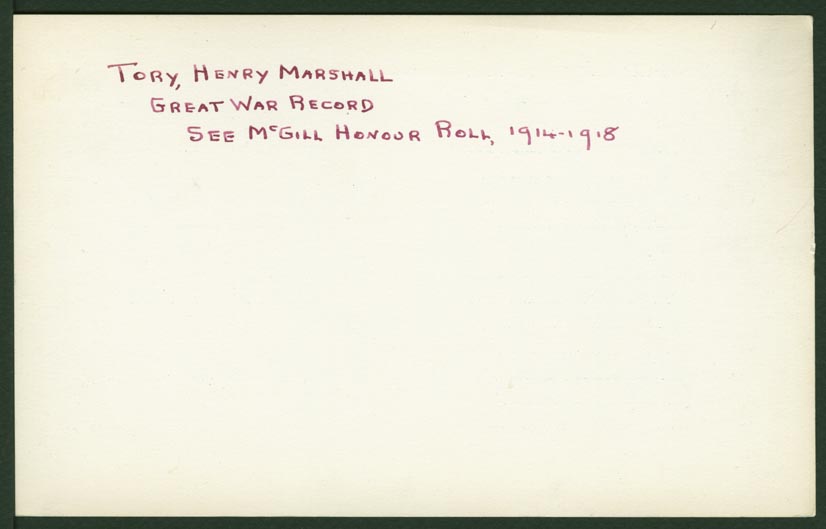 Tory, Henry Marshall
Great War Record
See McGill Honour Roll, 1914-1918